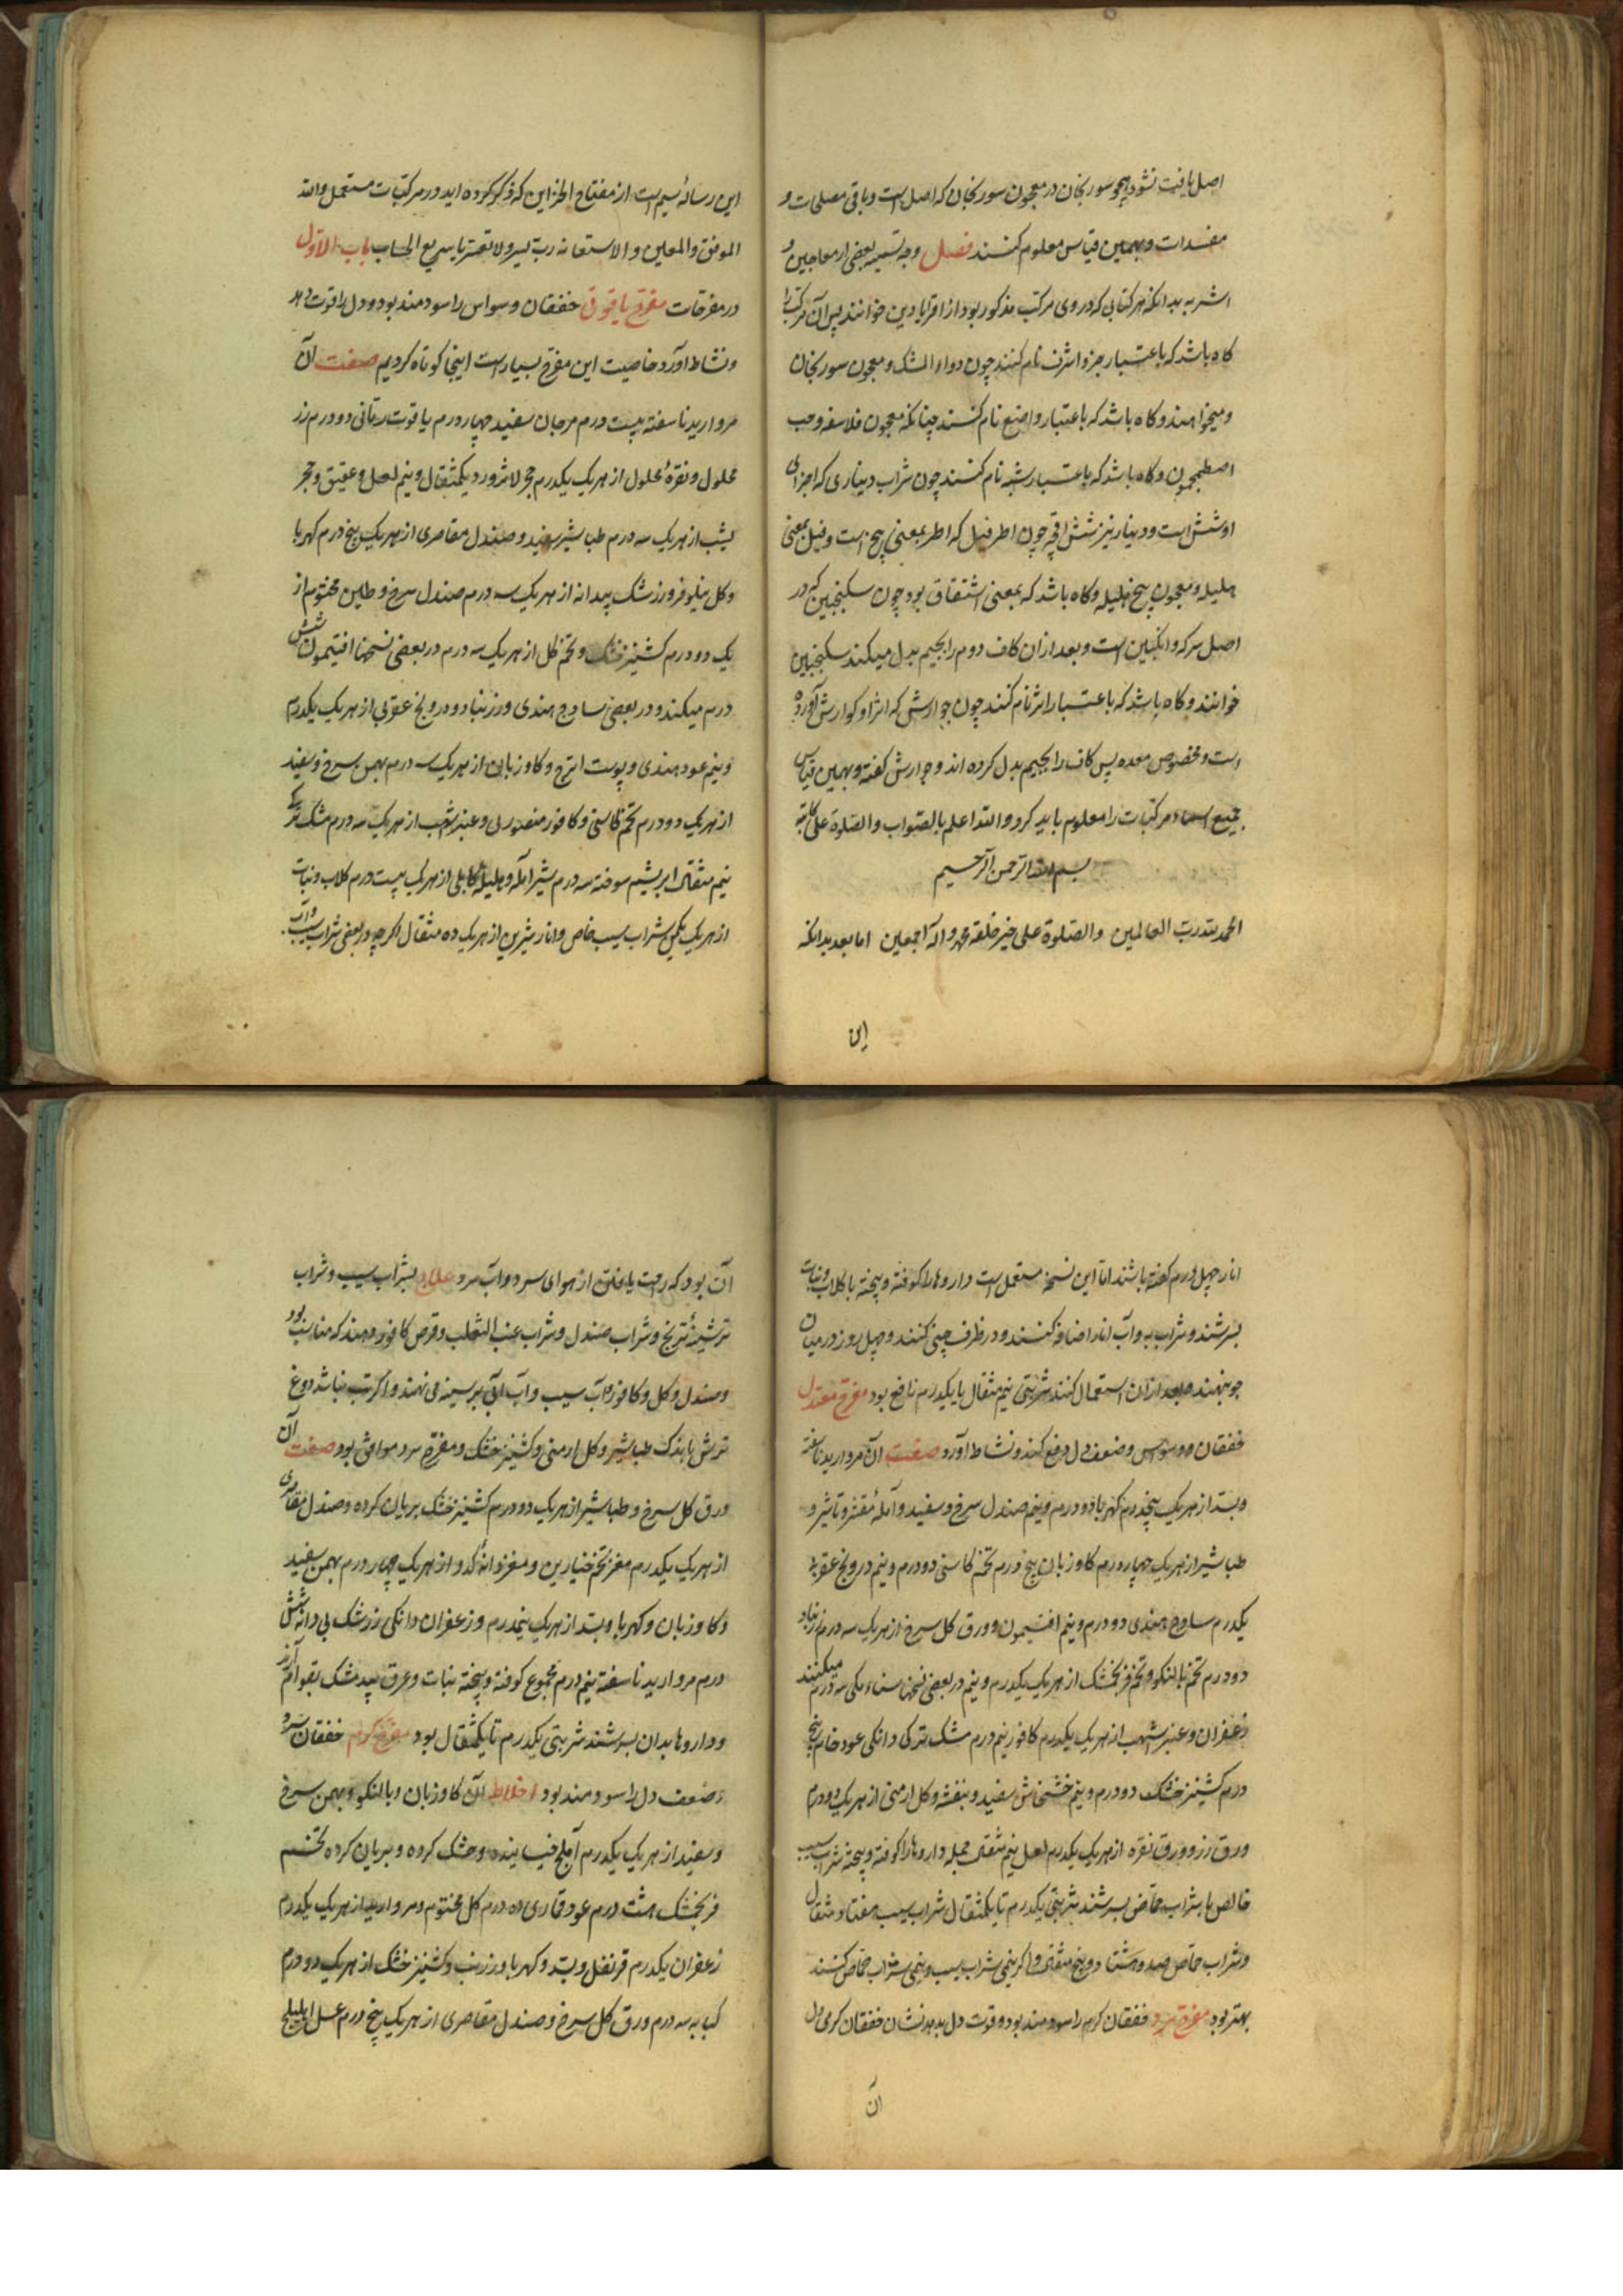 اصل یافت نشود همچو سورنجان در معجون سورنجان که اصل است و باقی مصلحات و
مفسدات و بهمین قیاس معلوم کنند فصل وجه تسمیه بعضی از معاجین و
اشربه بدانکه هر کتابی که در وی مرکب مذکور بود از اقرابادین خوانند پس آن مرکب را
کاه باشد که باعتبار جزو اشرف نام کنند چون دواء المشک و معجون سورنجان
و میخوانند و کاه باشد که باعتبار واضع نام کنند چنانکه معجون فلاسفه و حب
اصطمحیقون و کاه باشد که باعتبار شبه نام کنند چون شراب دیناری که اجزای
او شش است و دینار نیز شش چون اطرفیل که اطر بمعنی پنج است و فیل بمعنی
هلیله و معجون پنج هلیله و کاه باشد که بمعنی اشتقاق بود چون سکنجبین که در
اصل سرکه و انکبین است و بعد از ان کاف دوم را بجیم بدل میکند سکنجبین
خوانند و کاه باشد که باعتبار اثر نام کنند چون جوارش که اثر او کوارش آورد
است و مخصوص معده پس کاف را بجیم بدل کرده اند و جوارش کفته و بهمین قیاس
جمیع اسماء مرکبات را معلوم باید کرد والله اعلم بالصواب والصلوة علی
بسم الله الرحمن الرحیم
الحمد لله رب العالمین والصلوة علی خیر خلقه محمد و آله اجمعین اما بعد بدانکه
این
این رسالۀ سیم است از مفتاح الخزاین که ذکر کرده اید در مرکبات مستعمل والله
الموفق والمعین و الاستعانه رب یسر ولا تعسر یا سریع الحساب باب الاول
در مفرحات مفرح یاقوتی خفقان و سواس را سودمند بود و دل را قوت دهد
و نشاط آورد خاصیت این مفرح بسیار است اینجا کوتاه کردیم صفت آن
مروارید ناسفته بیست درم مرجان سفید چهار درم یاقوت رمانی دو درم زر
محلول و نقرۀ محلول از هر یک یکدرم حجر لاژورد یکمثقال و نیم لعل و عقیق و حجر
یشب از هر یک سه درم طباشیر سفید و صندل مقاصری از هر یک پنج درم کهربا
و کل نیلوفر و زرشک بیدانه از هر یک سه درم صندل سرخ و طین مختوم از
یک دو درم کشنیز خشک و تخم کل از هر یک سه درم در بعضی نسخها افتیمون شش
درم میکنند و در بعضی ساذج هندی و زرنباد و درونج عقربی از هر یک یکدرم
و نیم عود هندی و پوست اترج و کاوزبان از هر یک سه درم بهمن سرخ و سفید
از هر یک دو درم تخم کاسنی و کافور منصوری و عنبر اشهب از هر یک سه درم مشک ترکی
نیم مثقال ابریشم سوخته سه درم شیر آمله و هلیلۀ کابلی از هر یک بیست درم کلاب و نبات
از هر یک یکمن شراب سیب خاص و انار شیرین از هر یک ده مثقال اکرچه در بعضی شراب سیب و آب
انار چهل درم کفته باشند اما این نسخه مستعمل است داروها را کوفته و بیخته با کلاب و نبات
بسرشند و شراب به و آب انار اضافه کنند و در ظرف چینی کنند و چهل روز در میان
جو بنهند و بعد از ان استعمال کنند شربتی نیم مثقال یا یکدرم نافع بود مفرح معتدل
خفقان و وسواس و ضعف دل دفع کند و نشاط آورد صفت آن مروارید ناسفته
و بسد از هر یک پنجدرم کهربا دو درم و نیم صندل سرخ و سفید و آملۀ مقشر و
طباشیر از هر یک چهار درم کاوزبان پنج درم تخم کاسنی دو درم و نیم درونج عقربی
یکدرم ساذج هندی دو درم و نیم افتیمون و ورق کل سرخ از هر یک سه درم زرنباد
دو درم تخم بالنکو و تخم فرنجمشک از هر یک یکدرم و نیم در بعضی نسخها سناء مکی سه درم میکنند
زعفران و عنبر اشهب از هر یک یکدرم کافور نیم درم مشک ترکی دانکی عود خام پنج
درم کشنیز خشک دو درم و نیم خشخاش سفید و بنفشه و کل ارمنی از هر یک دو درم
ورق زر و ورق نقره از هر یک یکدرم لعل نیم مثقال جمله داروها را کوفته و بیخته شراب سیب
خالص با شراب حماض بسرشند شربتی یکدرم تا یکمثقال شراب سیب هفتاد مثقال
و شراب حماض صد و هشتاد و پنج مثقال و اکر نیمی شراب سیب و نیمی شراب حماض کنند
بهتر بود مفرح سرد خفقان کرم را سودمند بود و قوت دل بدهد نشان خفقان کرمی دل
آن
آن بود که راحت یابد از هوای سرد و آب سرد علاج بشراب سیب و شراب
ترشی ترنج و شراب صندل و شراب عنب الثعلب و قرص کافور دهند که مناسب بود
و صندل و کل و کافور و آب سیب و آب آبی بر سینه می نهند و اکر تب نباشد دوغ
ترش با اندک طباشیر و کل ارمنی و کشنیز خشک و مفرح سرد موافق بود صفت آن
ورق کل سرخ و طباشیر از هر یک دو درم کشنیز خشک بریان کرده و صندل مقاصری
از هر یک یکدرم مغز تخم خیارین و مغز دانۀ کدو از هر یک چهار درم بهمن سفید
و کاوزبان و کهربا و بسد از هر یک نیمدرم و زعفران دانکی زرشک بی دانه شش
درم مروارید ناسفته نیم درم مجموع کوفته و بیخته نبات و عرق بیدمشک بقوام آرند
و داروها بدان بسرشند شربتی یکدرم تا یکمثقال بود مفرح کرم خفقان سرد
و ضعف دل را سودمند بود اخلاط آن کاوزبان و بالنکو و بهمن سرخ
و سفید از هر یک یکدرم آملج خیسانیده و خشک کرده و بریان کرده تخم
فرنجمشک هشت درم عود قماری ده درم کل مختوم و مروارید از هر یک یکدرم
زعفران یکدرم قرنفل و بسد و کهربا و زرنب و کشنیز خشک از هر یک دو درم
کبابه سه درم ورق کل سرخ و صندل مقاصری از هر یک پنج درم عسل